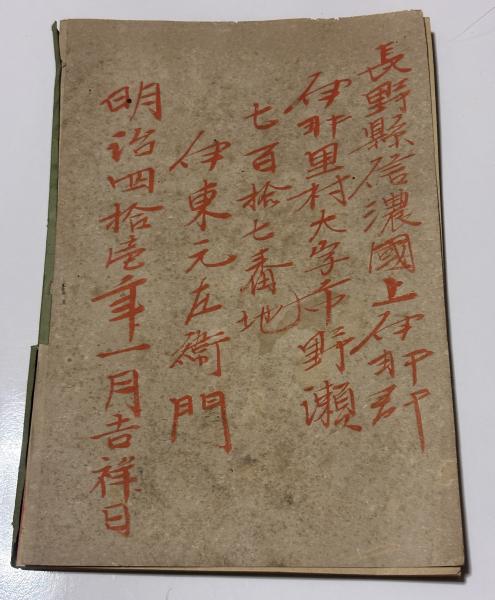 長野縣信濃國上伊那郡
伊那里村大字市野瀬
七百拾七番地
伊東元左衛門
明治四拾壱年一月吉祥日